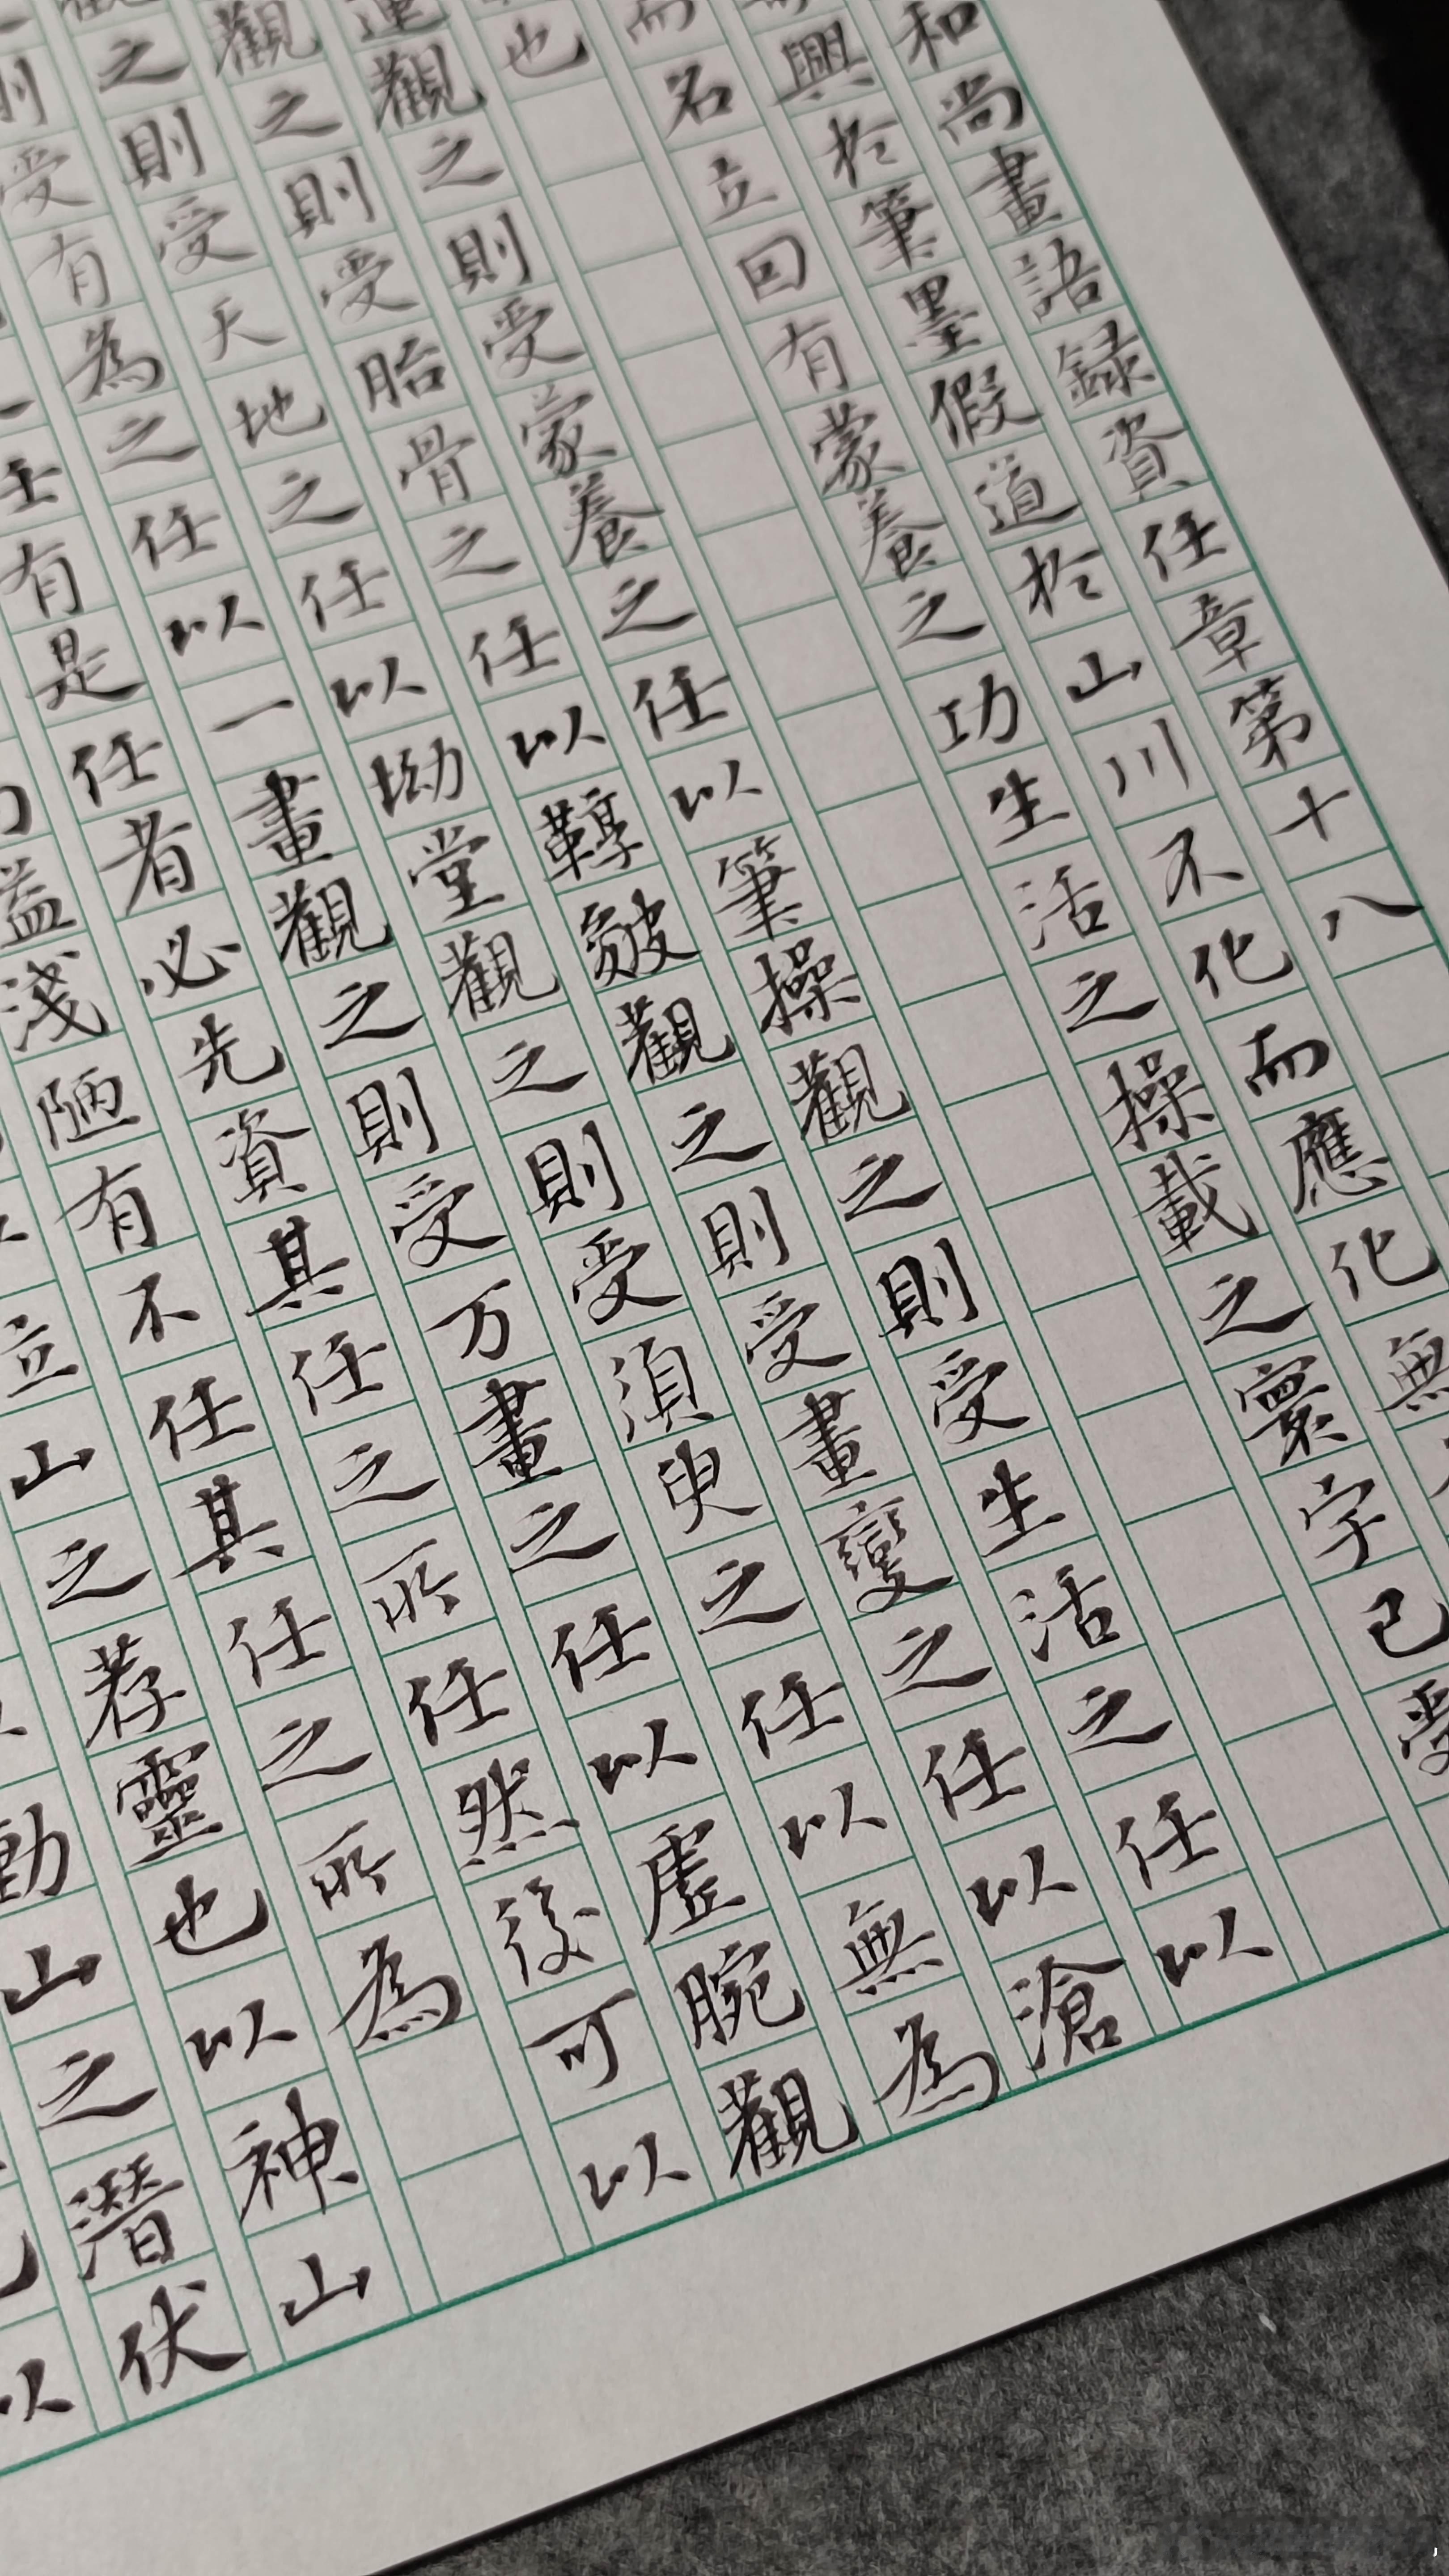 和尚畫語録資任章第十八
興於筆墨假道於山川不化而應化無
而名立囙有蒙養之功生活之操載之寰宇已受
也
連觀之則受蒙養之任以筆操觀之則受生活之任以
觀之則受胎骨之任以鞟皴觀之則受畫變之任以滄
之則受天地之任以坳堂觀之則受須臾之任以無為
則受有為之任以一畫觀之則受万畫之任以虛腕觀
一任有是任者必先資其任之所任然後可以
益淺陋有不任其任之所為
立山之荐靈也以神山
動山之潛伏
以